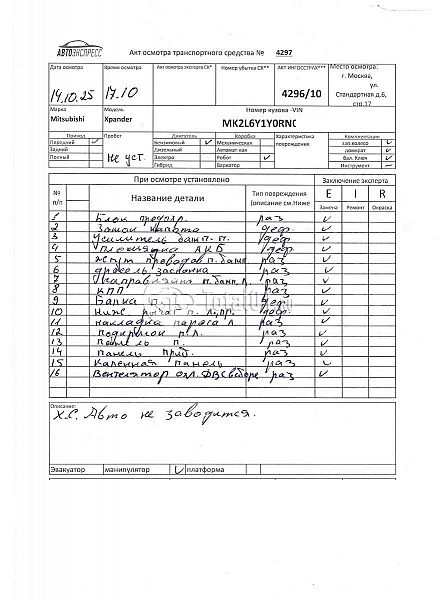 АВТОЭКСПРЕСС
Акт осмотра транспортного средства № 4297
Дата осмотра Время осмотра Акт осмотра эксперта СК* Номер убытка СК** АКТ ИНГОССТРАХ*** Место осмотра:
14.10.25 17.10 4296/10 г. Москва, ул. Стандартная д.6, стр.17
Марка Модель Номер кузова -VIN
Mitsubishi Xpander MK2L6Y1Y0RN
Привод Пробег Двигатель Коробка Характеристика повреждения Комплектация
Передний ✓ Бензиновый ✓ Механическая зап.колесо ✓
Задний Дизельный Автомат-кая домкрат ✓
Полный Не уст. Электро Робот ✓ бал. Ключ ✓
Гибрид Вариатор Инструмент
При осмотре установлено Заключение эксперта
№ п/п Название детали Тип повреждения (описание см.Ниже E I R
Замена Ремонт Окраска
1 Блок предохр. раз ✓
2 Замок капота деф. ✓
3 Усилитель бамп. п. деф. ✓
4 Площадка АКБ деф. ✓
5 Жгут проводов п. бамп. раз ✓
6 дросель заслонка раз ✓
7 Направляйка п. бамп. л. раз ✓
8 КПП раз ✓
9 Балка деф ✓
10 Ниж. рычаг п. л, пр. деф. ✓
11 накладка парога л раз ✓
12 Подкрылок р.л. раз ✓
13 п. раз ✓
14 панель приб. раз ✓
15 панель раз ✓
16 Вентелятор охл. ДВС в сборе раз ✓
Описание:
Х.С. Авто не заводится.
Эвакуатор манипулятор ✓ платформа